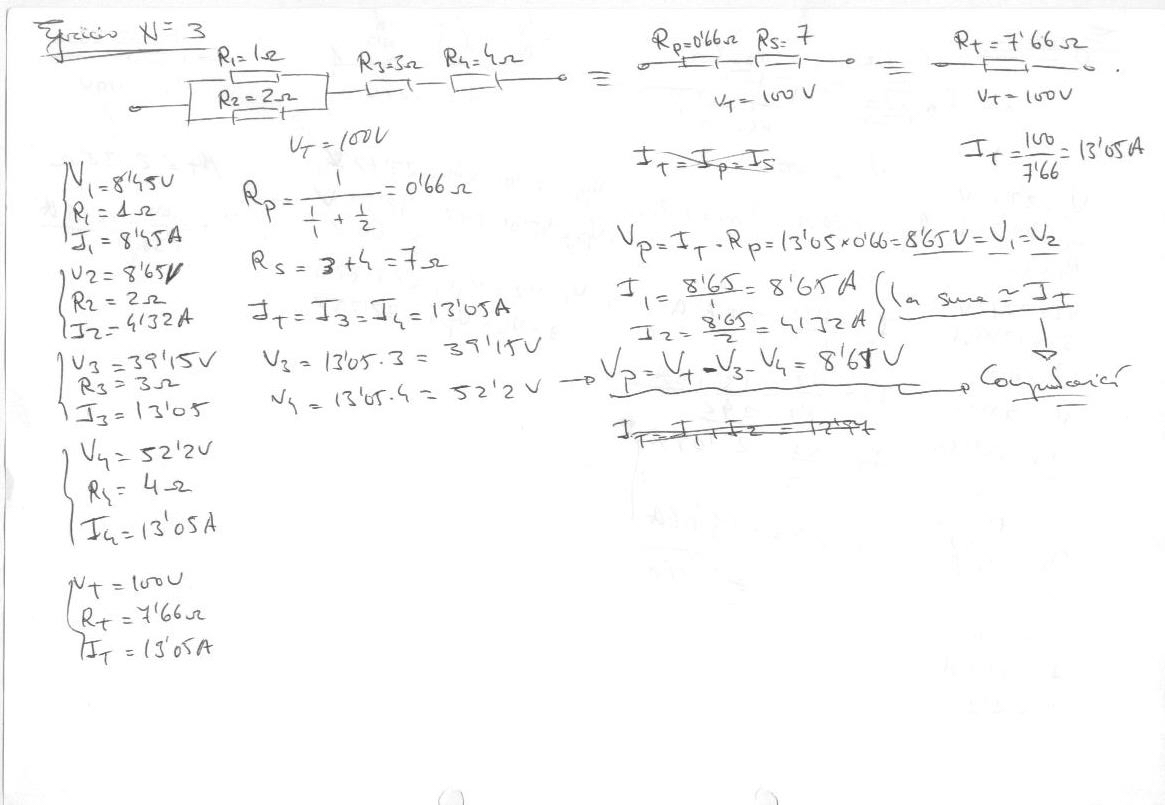 Ejercicio Nº 3
R1=1Ω
R2=2Ω
R3=3Ω R4=4Ω
VT=100V
≡
Rp=0'66Ω RS=7
VT=100V
≡
RT=7'66Ω
VT=100V
IT=Ip=IS
IT=100/7'66=13'05A
V1=8'45V
R1=1Ω
I1=8'45A
V2=8'65V
R2=2Ω
I2=4'32A
V3=39'15V
R3=3Ω
I3=13'05
V4=52'2V
R4=4Ω
I4=13'05A
VT=100V
RT=7'66Ω
IT=13'05A
Rp=1/(1/1+1/2)=0'66Ω
RS=3+4=7Ω
IT=I3=I4=13'05A
V3=13'05·3=39'15V
V4=13'05·4=52'2V
Vp=IT·Rp=13'05×0'66=8'65V=V1=V2
I1=8'65/1=8'65A
I2=8'65/2=4'32A
la suma ≃ IT
→Vp=VT-V3-V4=8'65V → Comprobación
IT=I1+I2=12'97